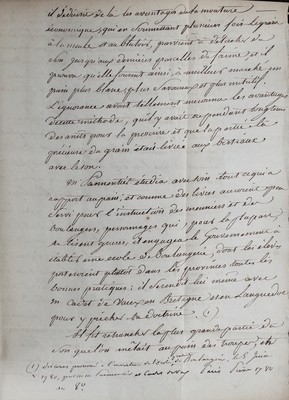 il déduisit de là les avantages de la mouture
économique qui en soumettant plusieurs fois le grain
à la meule et au blutoir, parvient à détacher du
son jusqu'aux dernières parcelles de farine; et il
prouva qu'elle fournit ainsi, à meilleur marché un
pain plus blanc, plus savoureux et plus nutritif.
L'ignorance avait tellement méconnu les avantages
de cette méthode, qu'il y avait eu pendant longtems
des arrêts pour la proscrire et que la partie la plus
précieuse du grain était livrée aux bestiaux
avec le son.
M. Parmentier étudia avec soin tout ce qui a
rapport au pain; et comme des livres auraient peu
servi pour l'instruction des meuniers et des
Boulangers, personnages qui, pour la plupart,
ne lisent guères, il engagea le Gouvernement à
établir une école de Boulangerie, dont les élèves
porteroient plutôt dans les provinces toutes les
bonnes pratiques; il se rendit lui même avec
M. Cadet de Vaux en Bretagne et en Languedoc
pour y prêcher sa doctrine. (1)
Il fit retrancher la plus grande partie du
son que l'on mêlait au pain des troupes; et
(1) Discours prononcé à l'ouverture de l'école de Boulangerie, le 8 Juin
1780, par Parmentier et Cadet de Vaux Paris 1780
in 8°